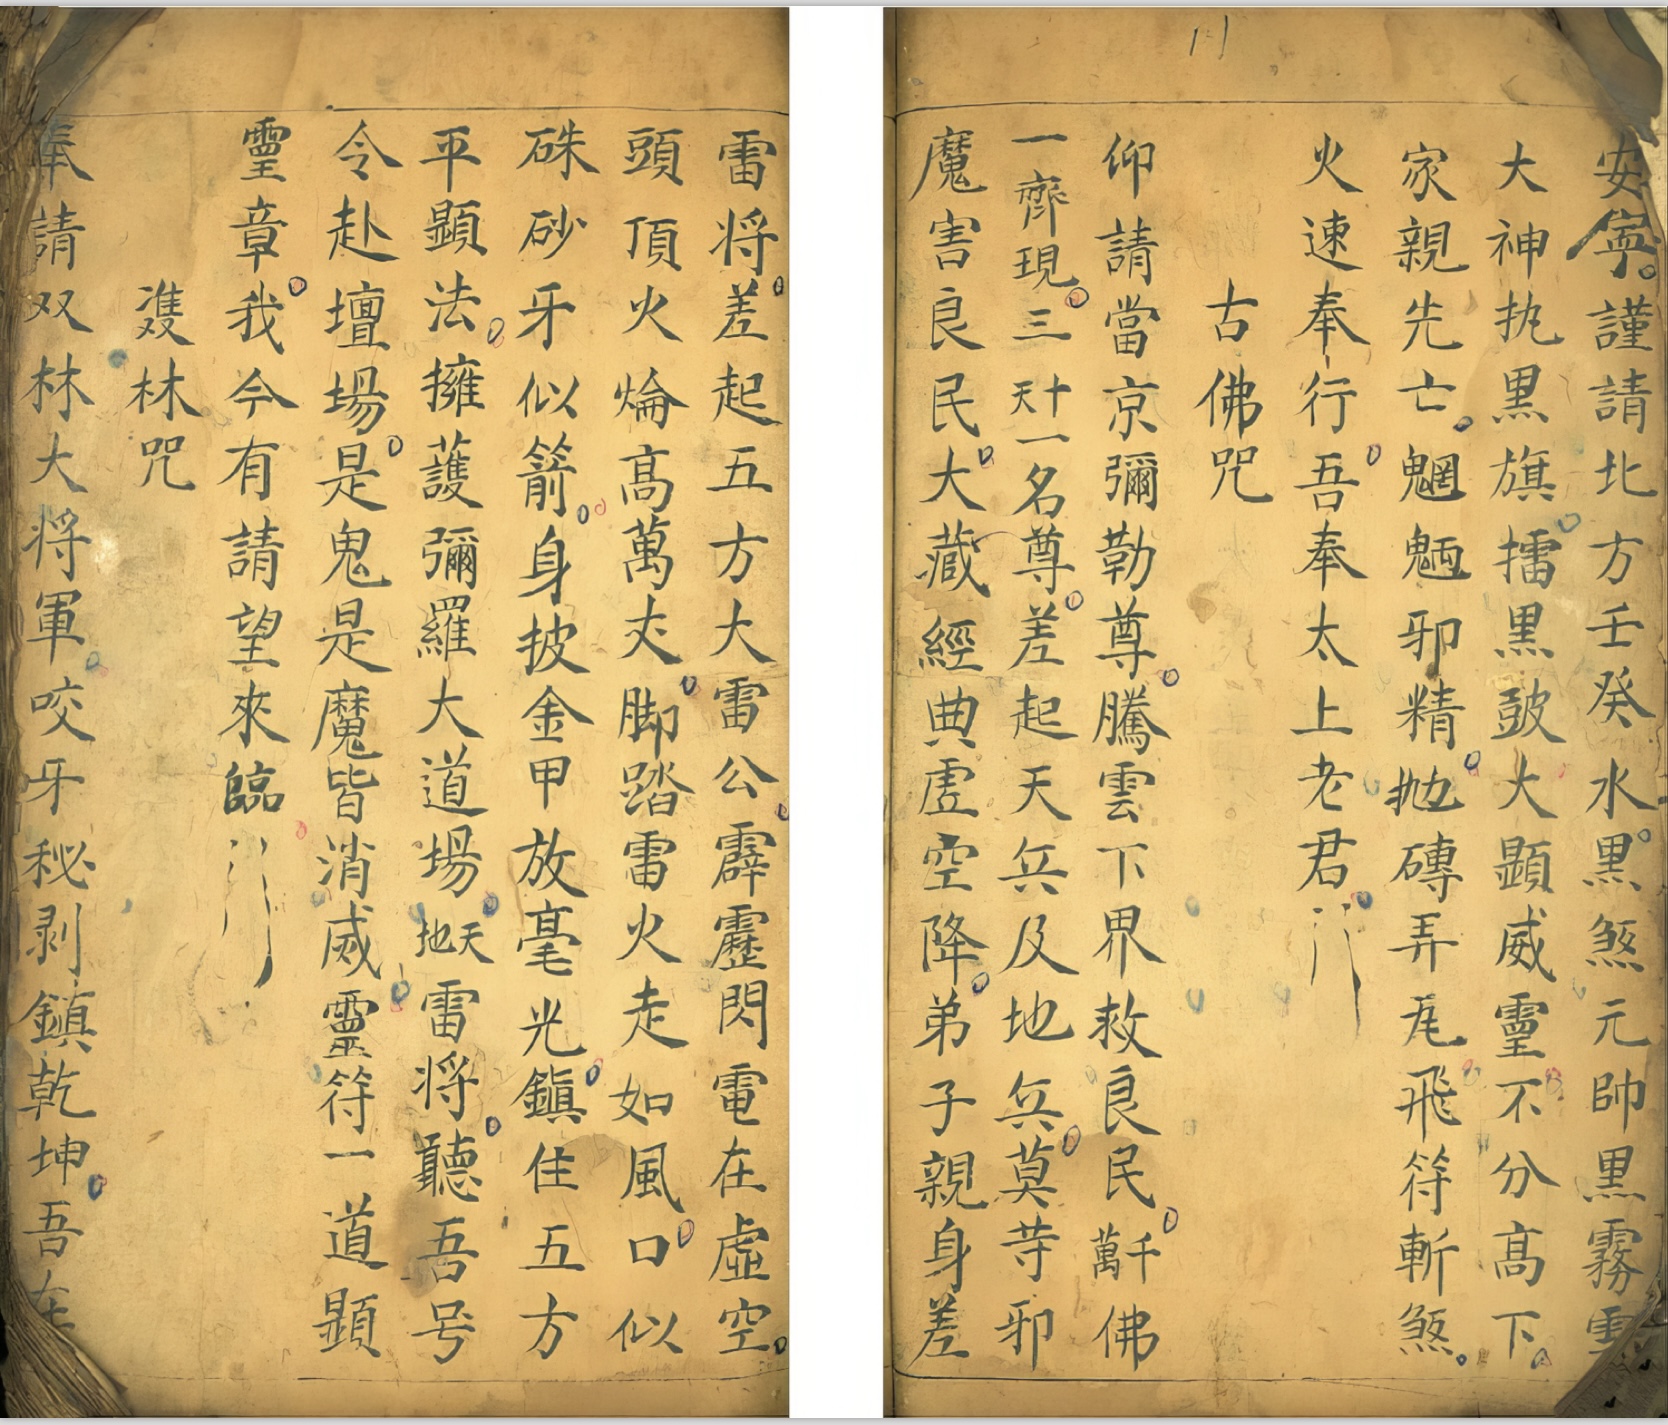 安寧謹請北方壬癸水黒煞元帥黒霧雲
大神执黒旗擂黒皷大顕威靈不分髙下
家親先亡魍魎邪精抛磚弄瓦飛符斬煞
火速奉行吾奉太上老君
古佛咒
仰請當京彌勒尊騰雲下界救良民千萬佛
一齊現三十天一名尊差起天兵及地兵莫等邪
魔害良民大藏經典虛空降弟子親身差
雷将差起五方大雷公霹靂閃電在虛空
頭頂火燴髙萬丈脚踏雷火走如風口似
硃砂牙似箭身披金甲放毫光鎮住五方
平顕法擁護彌羅大道場天地雷将聽吾号
令赴壇場是鬼是魔皆消威靈符一道顕
靈章我今有請望來臨
雙林咒
奉請双林大将軍咬牙秘剥鎮乾坤吾